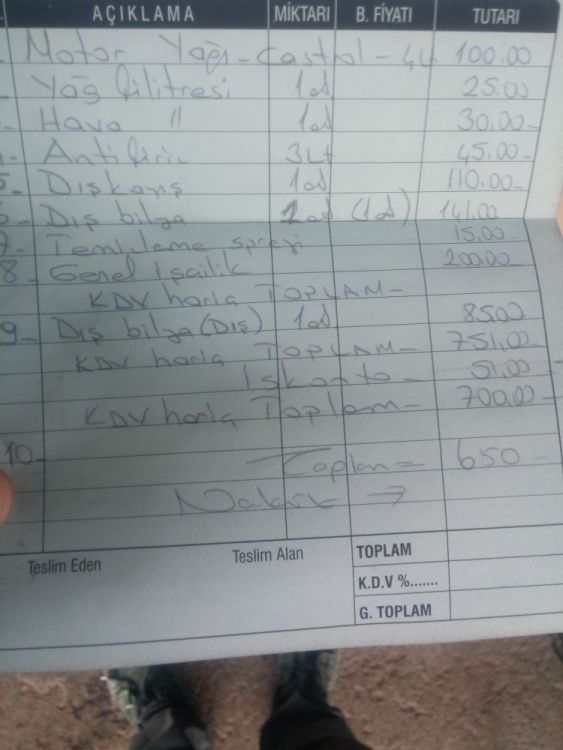 AÇIKLAMA MİKTARI B. FİYATI TUTARI
Motor Yağı - Castrol - 4Lt 100.00
Yağ filitresi 1ad 25.00
Hava " 1ad 30.00-
Antifiriz 3Lt 45.00-
5- 1ad 110.00-
6- Dış bilya (1ad) 141.00
7- Temizleme spreyi 15.00
8- Genel işçilik 200.00
KDV hariç TOPLAM-
9- Dış bilya (Dış) 1ad 85.00
KDV hariç TOPLAM- 751.00
İskonto- 51.00
KDV hariç Toplam- 700.00
10-
Toplam = 650-
→
Teslim Eden Teslim Alan TOPLAM
K.D.V %.......
G. TOPLAM